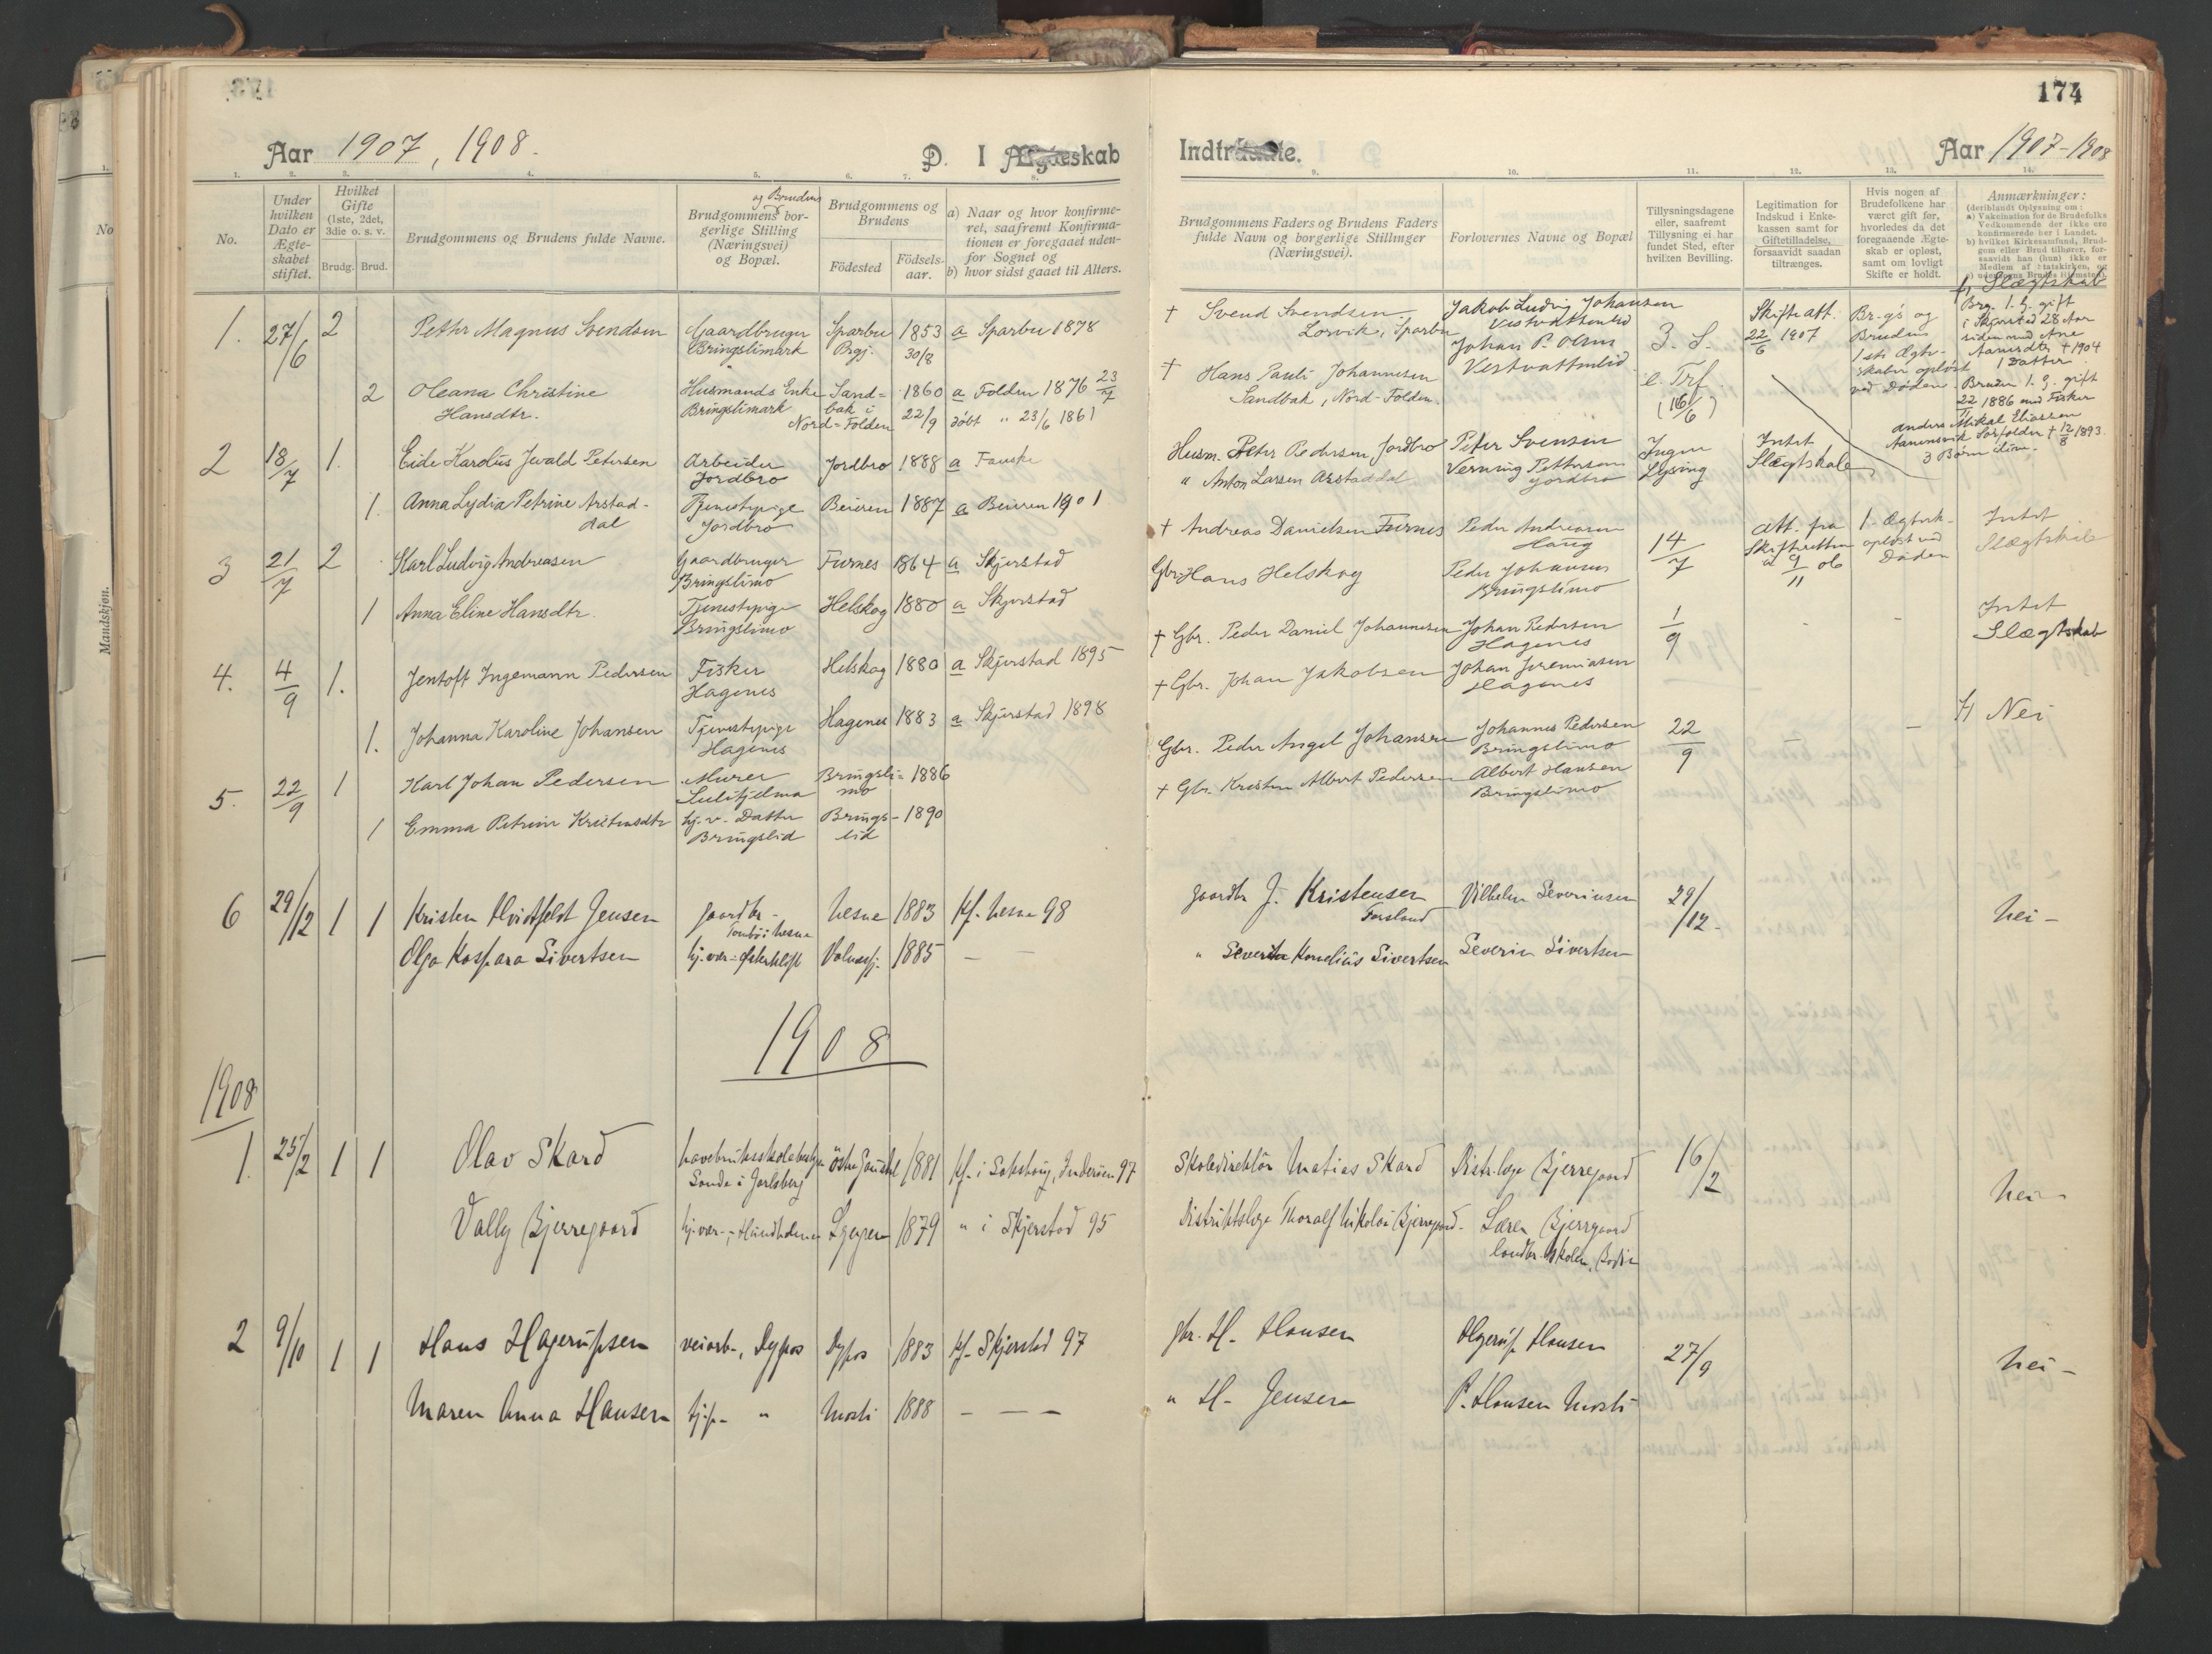 174
Aar 1907, 1908.
D. I Ægteskab
Indtraadte.
Aar 1907-1908
1. 2. 3. 4. 5. 6. 7. 8. 9. 10. 11. 12. 13. 14.
No.
Under hvilken Dato er Ægte-skabet stiftet.
Hvilket Gifte (1ste, 2det, 3die o. s. v.
Brudg. Brud.
Brudgommens og Brudens fulde Navne.
og Brudens
Brudgommens bor-gerlige Stilling (Næringsvei) og Bopæl.
Brudgommens og Brudens
Födested
Födsels-aar.
a) Naar og hvor konfirme-ret, saafremt Konfirma-tionen er foregaaet uden-for Sognet og
b) hvor sidst gaaet til Alters.
Brudgommens Faders og Brudens Faders fulde Navn og borgerlige Stillinger (Næringsvei).
Forlovernes Navne og Bopæl
Tillysningsdagene eller, saafremt Tillysning ei har fundet Sted, efter hvilken Bevilling.
Legitimation for Indskud i Enke-kassen samt for Giftetilladelse, forsaavidt saadan tiltrænges.
Hvis nogen af Brudefolkene har været gift før, hvorledes da det foregaaende Ægte-skab er opløst, samt om lovligt Skifte er holdt.
Anmærkninger:
(deriblandt Oplysning om:
a) Vakcination for de Brudefolks Vedkommende der ikke ere konfirmerede her i Landet.
b) hvilket Kirkesamfund, Brud-gom eller Brud tilhører, for-saavidt han (hun) ikke er Medlem af Statskirken, og
1. 27/6 2 Petter Magnus Svendsen
Gaardbruger Bringslimark
Sparbu
1853 30/8
a Sparbu 1878
2 Oleana Christine Hansdtr.
Husmands Enke Bringslimark
Sand-bak i Nord-Folden
1860 22/9
a Folden 1876 23/7
døbt " 23/6 1861
† Svend Svendsen Lorvik, Sparbu
Jakob Ludvig Johansen Vestvattenlid
Johan P. Olsen Vestvattenlid
3. S. e. Trf. (16/6)
Skifteatt. 22/6 1907
Br.gs og Brudens 1ste Ægte-skaber opløst ved Døden.
Slægtskab
Brg. 1. g. gift i Skjerstad 28 Aar siden med Ane † 1904 1 Datter
Bruden 1. g. gift 22 1886 med Fisker Anders Mikal Eliassen † 12/8 1893. 3 Børn
† Hans Pauli Johannesen Sandbak, Nord-Folden.
2 18/7 1. Eide Karolus Jevald Petersen
Arbeider Jordbro
Jordbro 1888 a Fauske
1. Anna Lydia Petrine Arstad-dal
Tjenestepige Jordbro
Beieren 1887 a Beieren 1901
Husm. Peter Pedersen Jordbro
Peter Svensen
" Anton Larsen Arstaddal
Verning Pettersen Jordbro
Ingen Lysning
Intet Slægtskab
3 21/7 2 Karl Ludvig Andreasen
Gaardbruger Bringslimo
Furnes 1864 a Skjerstad
1 Anna Eline Hansdtr.
Tjenestepige Bringslimo
Helskog 1880 a Skjerstad
† Andreas Danielsen Furnes
Peder Andreasen Haug
Gbr. Hans Helskog
Peder Johansen Bringslimo
14/7
Att. fra Skifteretten a 9/11 06
1. Ægtesk. opløst ved Døden
Intet Slægtskab
4. 4/9 1. Jentoft Ingemann Pedersen
Fisker Hagenes
Helskog 1880 a Skjerstad 1895
1. Johanna Karoline Johansen
Tjenestepige Hagenes
Hagenes 1883 a Skjerstad 1898
† Gbr. Peder Daniel Johannesen
Johan Pedersen Hagenes
† Gbr. Johan Jakobsen
Johan Jeremiasen Hagenes
1/9
Intet Slægtskab
5. 22/9 1 Karl Johan Pedersen
Murer Sulitjelma
Bringsli-mo 1886
1 Emma Petrine Kristensdtr
hj. v. Datter Bringslid
Brings-lid 1890
Gbr. Peder Angel Johansen
Johannes Pedersen Bringslimo
† Gbr. Kristen Albert Pedersen
Albert Hansen Bringslimo
22/9
Nei
6 29/12 1 1 Kristen Hvidtfeldt Jensen
gaardbr-
Nesne 1883 Kf. Nesne 98
Olga Kaspara Sivertsen
hj. vær-
1885 — —
gaardbr J. Kristensen Forsland
Vilhelm Severinsen
" Severin Kornelius Sivertsen
Severin Sivertsen
29/12-
Nei-
1908
1908
1. 25/2 1 1 Olav Skard
havebruksskolebestyr Sande i Jarlsberg
Østre Gausdal 1881
Kf. i Sakshaug, Inderøen 97
Vally Bjerregaard
hj. vær-, Hundholmen
Lyngen 1879 " i Skjerstad 95
Skoledirektør Matias Skard
Distr.læge Bjerregaard
Distriktslæge Thoralf Nikolai Bjerregaard-
Lærer Bjerregaard landbr.skolen, Bodin
16/2
Nei-
2 9/10 1 1 Hans Hagerupsen
veiarb-, Dypos
Dypos 1883 Kf. Skjerstad 97
Maren Anna Hansen
tj.p- "
Mosti 1888 — — —
gbr. H. Hansen
Hagerup Hansen
" H. Jensen
P. Hansen Mosti
27/9
Nei-
Mandskjøn.